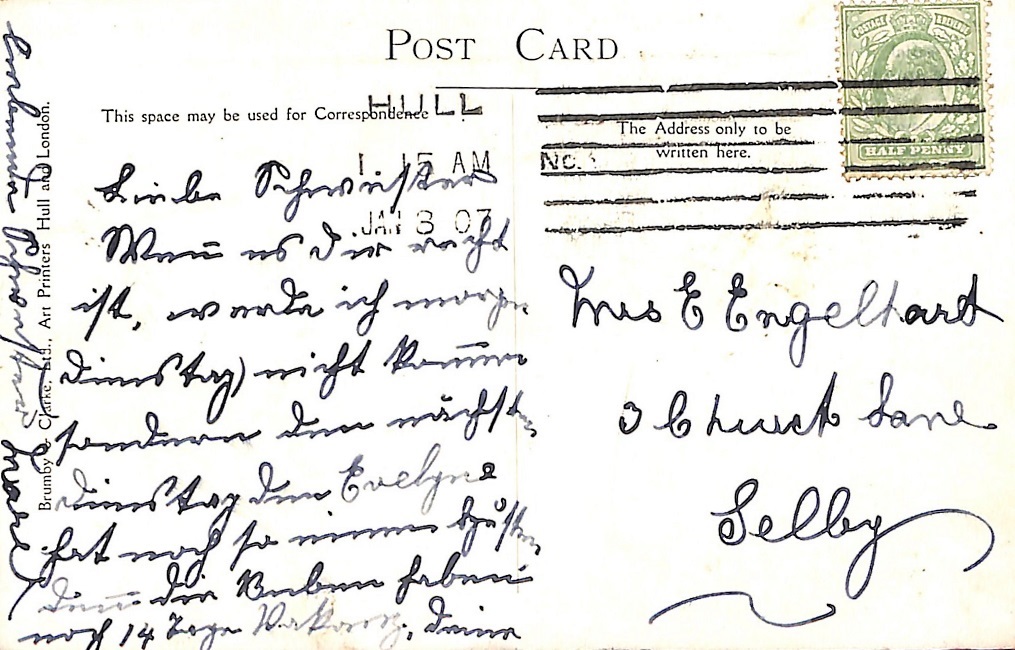 POST CARD
This space may be used for Correspondence
The Address only to be
written here.
HALF PENNY
HULL
1 15 AM
JAN 8 07
Liebe Schwester
Wenn̄ es dir recht
ist, werde ich morgen
Dienstag) nicht kom̄en
sondern den nächsten
Dienstag denn Evelyne
hat noch so einen Husten
den̄ die Buben haben
noch 14 Tage Vakanz, Deine
Schwester
Mrs E Engelhart
3 Church Lane
Selby
Brumby & Clarke, Ltd., Art Printers Hull and London.